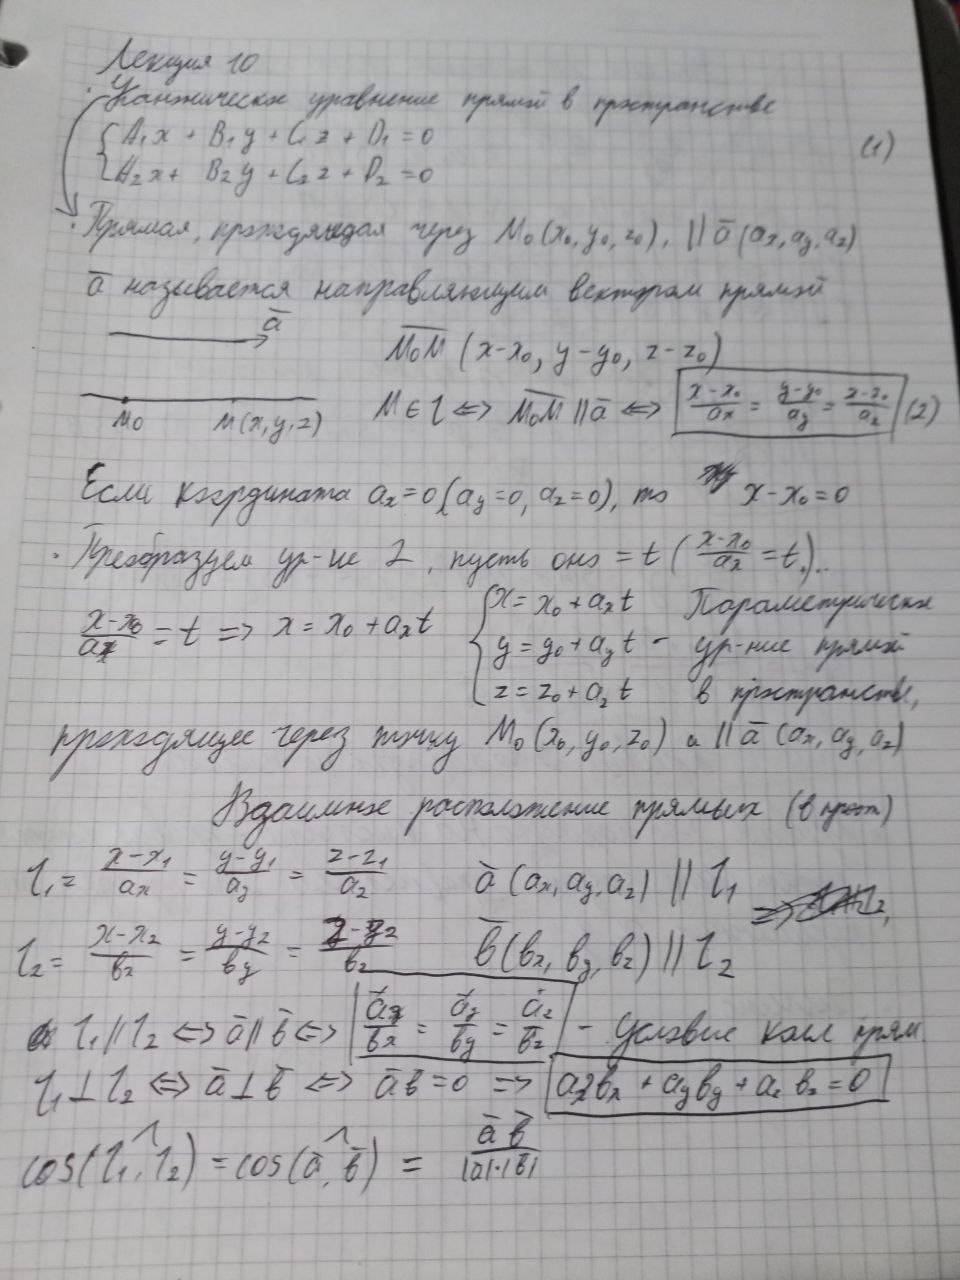 Лекция 10
· Каноническое уравнение прямой в пространстве
{ A₁x + B₁y + C₁z + D₁ = 0
{ A₂x + B₂y + C₂z + D₂ = 0 (1)
· Прямая, проходящая через M₀(x₀, y₀, z₀), || a̅ (aₓ, a_y, a_z)
a̅ называется направляющим вектором прямой
a̅
M₀M̅ (x-x₀, y-y₀, z-z₀)
M₀ M(x, y, z) M ∈ l ⇔ M₀M̅ || a̅ ⇔ (x-x₀)/aₓ = (y-y₀)/a_y = (z-z₀)/a_z (2)
Если координата aₓ=0 (a_y=0, a_z=0), то x-x₀=0
· Преобразуем ур-ие 2, пусть оно = t ((x-x₀)/aₓ = t)..
(x-x₀)/aₓ = t => x = x₀ + aₓt
{ x = x₀ + aₓt Параметрическое
{ y = y₀ + a_y t - ур-ние прямой
{ z = z₀ + a_z t в пространстве,
проходящее через точку M₀(x₀, y₀, z₀) и || a̅ (aₓ, a_y, a_z)
Взаимное расположение прямых (в прост)
l₁ = (x-x₁)/aₓ = (y-y₁)/a_y = (z-z₁)/a_z a̅ (aₓ, a_y, a_z) || l₁
l₂ = (x-x₂)/b_z = (y-y₂)/b_y = (z-z₂)/b_z b̅ (bₓ, b_y, b_z) || l₂
l₁ || l₂ ⇔ a̅ || b̅ ⇔ aₓ/bₓ = a_y/b_y = a_z/b_z - Условие колл прям.
l₁ ⊥ l₂ ⇔ a̅ ⊥ b̅ ⇔ a̅ b̅ = 0 => aₓbₓ + a_y b_y + a_z b_z = 0
cos(l₁,^ l₂) = cos(a̅,^ b̅) = a̅ b̅ / |a̅|·|b̅|